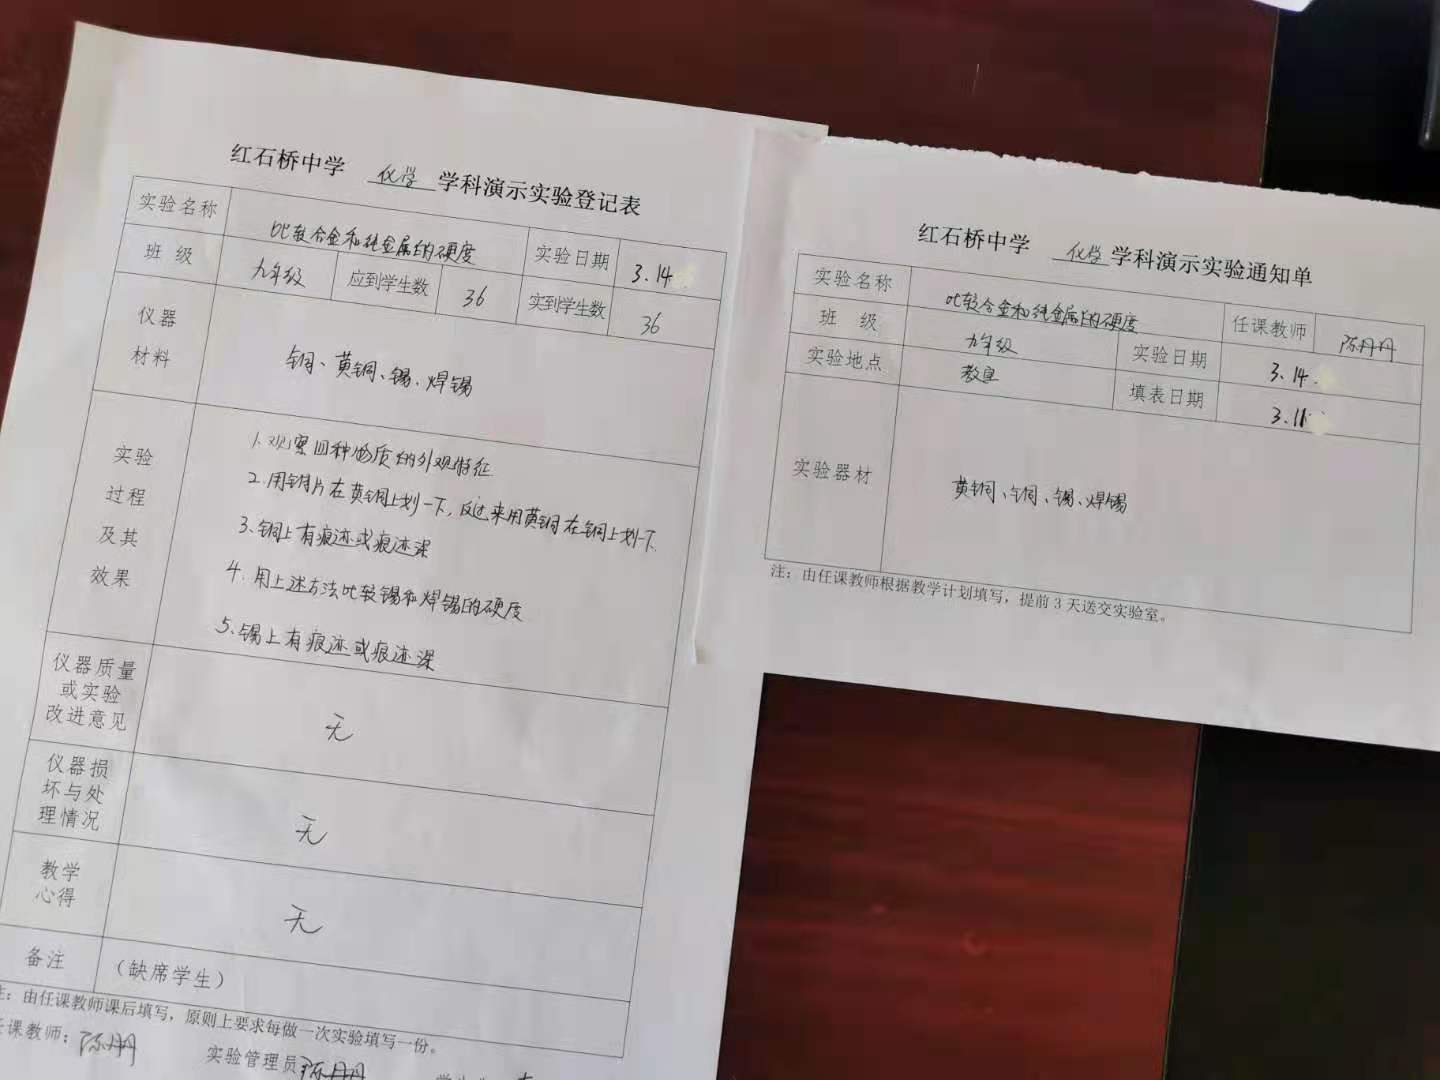 红石桥中学 化学 学科演示实验登记表
实验名称 比较合金和纯金属的硬度 实验日期 3.14
班 级 九年级 应到学生数 36 实到学生数 36
仪器材料 铜、黄铜、锡、焊锡
实验过程及其效果
1.观察四种物质的外观特征
2.用铜片在黄铜上划一下,反过来用黄铜在铜上划一下.
3.铜上有痕迹或痕迹深
4.用上述方法比较锡和焊锡的硬度
5.锡上有痕迹或痕迹深
仪器质量或实验改进意见 无
仪器损坏与处理情况 无
教学心得 无
备注 (缺席学生)
注:由任课教师课后填写,原则上要求每做一次实验填写一份。
任课教师:陈丹丹 实验管理员 陈丹丹
红石桥中学 化学 学科演示实验通知单
实验名称 比较合金和纯金属的硬度 任课教师 陈丹丹
班 级 九年级 实验日期 3.14.
实验地点 教室 填表日期 3.11
实验器材 黄铜、铜、锡、焊锡
注:由任课教师根据教学计划填写,提前3天送交实验室。